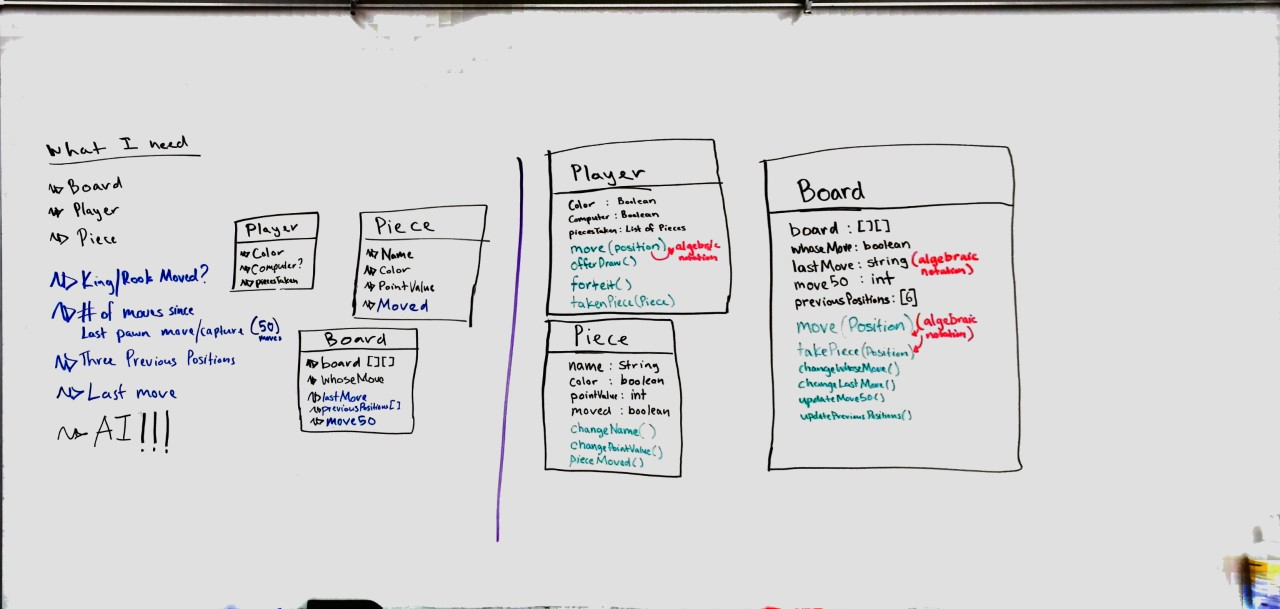 What I need
Board
Player
Piece
King/Rook Moved?
# of moves since
Last pawn move/capture (50)
moves
Three Previous Positions
Last move
AI!!!
Player
Color
Computer?
piecesTaken
Piece
Name
Color
PointValue
Moved
Board
board [][]
whoseMove
lastMove
previousPositions[]
move50
Player
Color : Boolean
Computer : Boolean
piecesTaken : List of Pieces
move(position) algebraic
notation
offerDraw()
forfeit()
takenPiece(Piece)
Piece
name : String
Color : boolean
pointValue : int
moved : boolean
changeName()
changePointValue()
pieceMoved()
Board
board : [][]
whoseMove : boolean
lastMove : string (algebraic
notation)
move50 : int
previousPositions : [6]
move(Position) (algebraic
notation)
takePiece(Position)
changeWhoseMove()
changeLastMove()
updateMove50()
updatePreviousPositions()